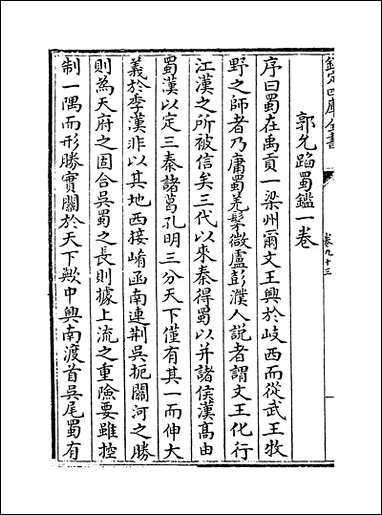 欽定四庫全書
卷九十三
郭允蹈蜀鑑一卷
序曰蜀在禹貢一梁州爾文王興於岐西而從武王牧
野之師者乃庸蜀羌髳微盧彭濮人說者謂文王化行
江漢之所被信矣三代以來秦得蜀以并諸侯漢高由
蜀漢以定三秦諸葛孔明三分天下僅有其一而伸大
義於季漢非以其地西接崤函南連荆吳扼關河之勝
則為天府之固合吳蜀之長則據上流之重險要雖控
制一隅而形勝實關於天下歟中興南渡首吳尾蜀有